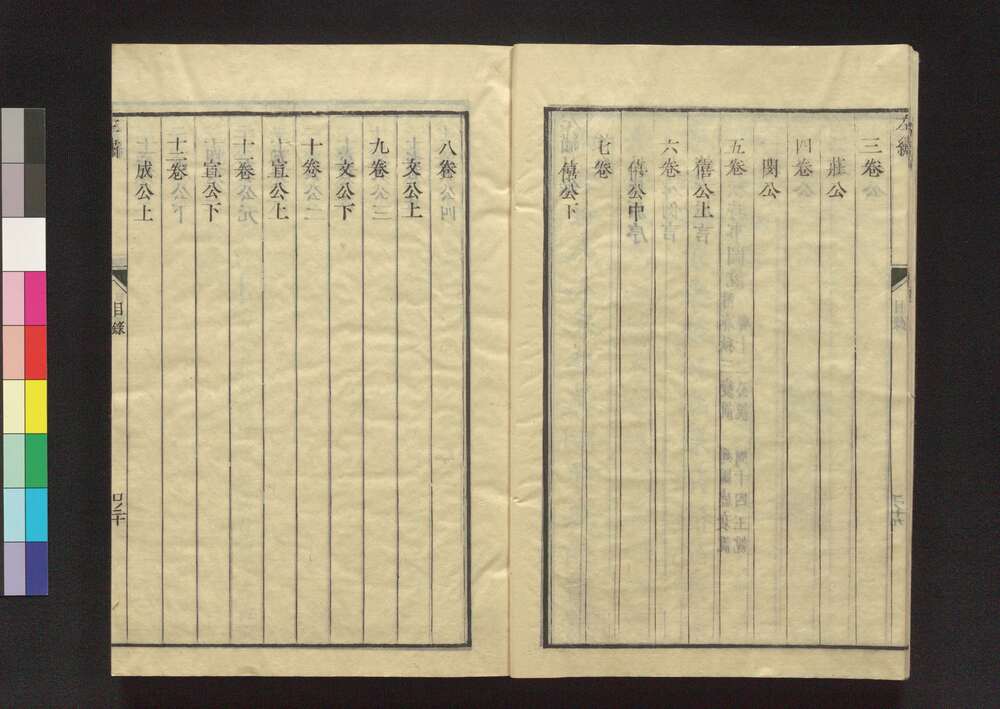 三卷
莊公
四卷
閔公
五卷
僖公上
六卷
僖公中
七卷
僖公下
八卷
文公上
九卷
文公下
十卷
宣公上
十一卷
宣公下
十二卷
成公上
目錄